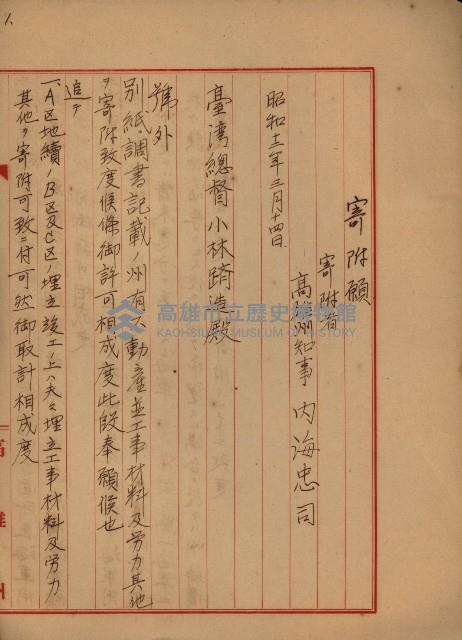 寄附願
寄附者
高雄州知事 内海忠司
昭和十二年三月十四日
臺灣總督小林躋造殿
號外
別紙調書記載ノ州有不動產並工事材料及労力其他
ヲ寄附致度候條御許可相成度此段奉願候也
追テ
一、A区地續ノB区及C区ノ埋立竣工ノ上ハ夫々埋立工事材料及労力
其他ヲ寄附可致ニ付可然御取計相成度
高雄州
高雄市立歷史博物館
KAOHSIUNG MUSEUM OF HISTORY